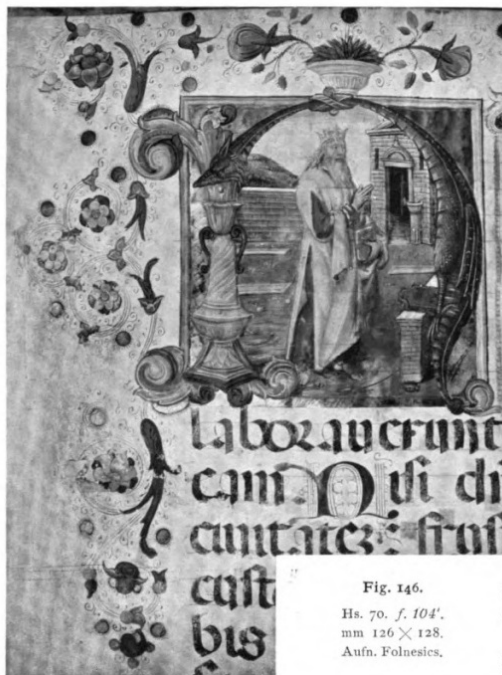 laborauerunt
eam. Nisi
ciuitatez: frus
cust
bis
Fig. 146.
Hs. 70. f. 104'.
mm 126 × 128.
Aufn. Folnesics.